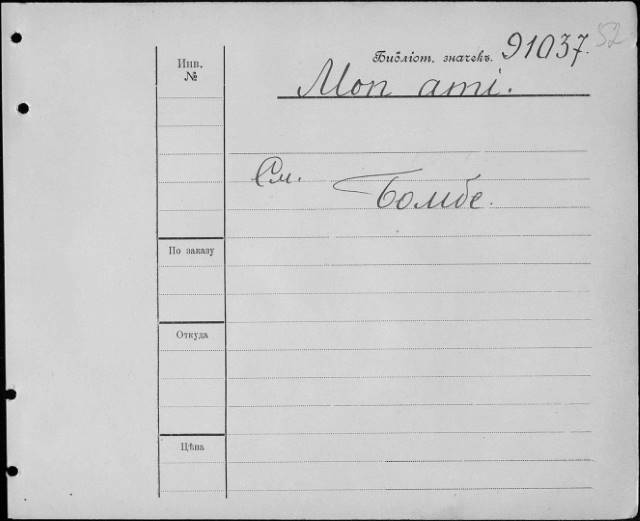 Инв. №
Библіот. значекъ. 91037. 52
Mon ami.
См. Бомбе.
По заказу
Откуда
Цѣна